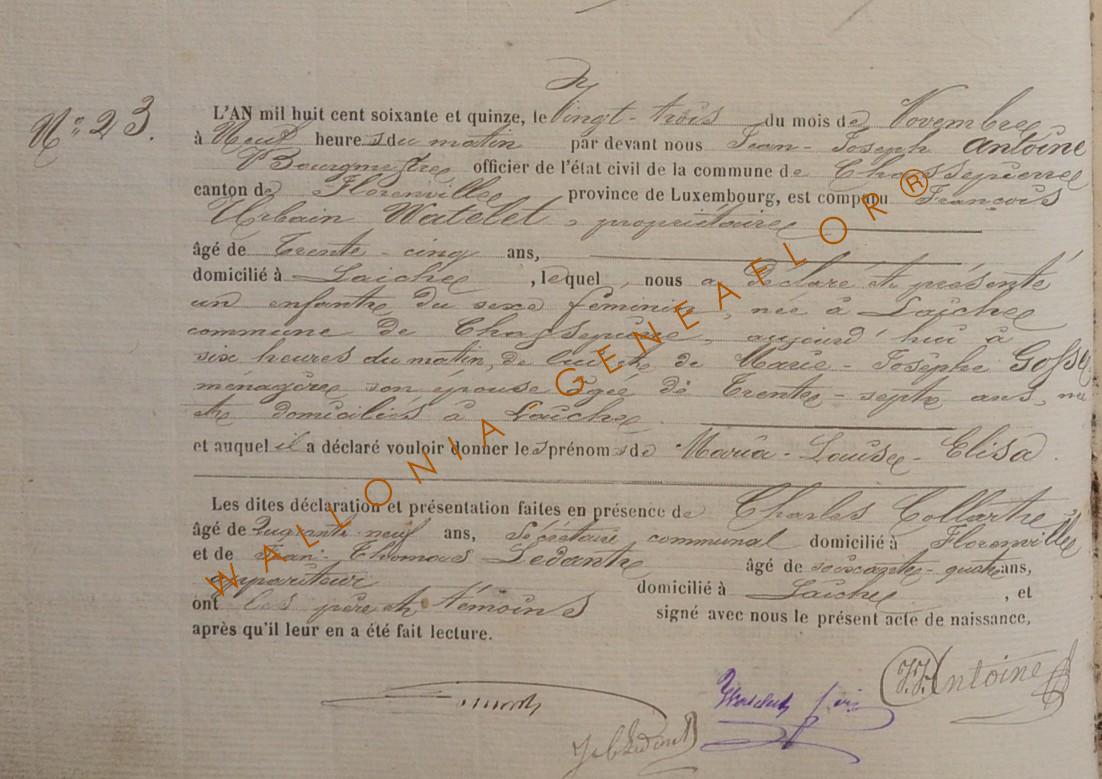 N° 23.
L'AN mil huit cent soixante et quinze, le Vingt-trois du mois de Novembre
à Neuf heures du matin par devant nous Jean-Joseph Antoine
Bourgmestre officier de l'état civil de la commune de Chassepierre
canton de Florenville province de Luxembourg, est comparu François
Urbain Watelet, propriétaire
âgé de Trente-cinq ans,
domicilié à Laiche, lequel, nous a déclaré et présenté
un enfant du sexe féminin, née à Laiche
commune de Chassepierre, aujourd'hui à
six heures du matin, de lui et de Marie-Josèphe Gosse
ménagère son épouse âgée de Trente-sept ans,
et domiciliés à Laîche
et auquel il a déclaré vouloir donner les prénoms de Maria-Louise-Elisa.
Les dites déclaration et présentation faites en présence de Charles Collart
âgé de quarante neuf ans, Secrétaire communal domicilié à Florenville
et de Jean-Thomas Ledant âgé de soixante-quatre ans,
appariteur domicilié à Laiche, et
ont les père et témoins signé avec nous le présent acte de naissance,
après qu'il leur en a été fait lecture.
J.J. Antoine
WALLONIA GENEAFLOR®